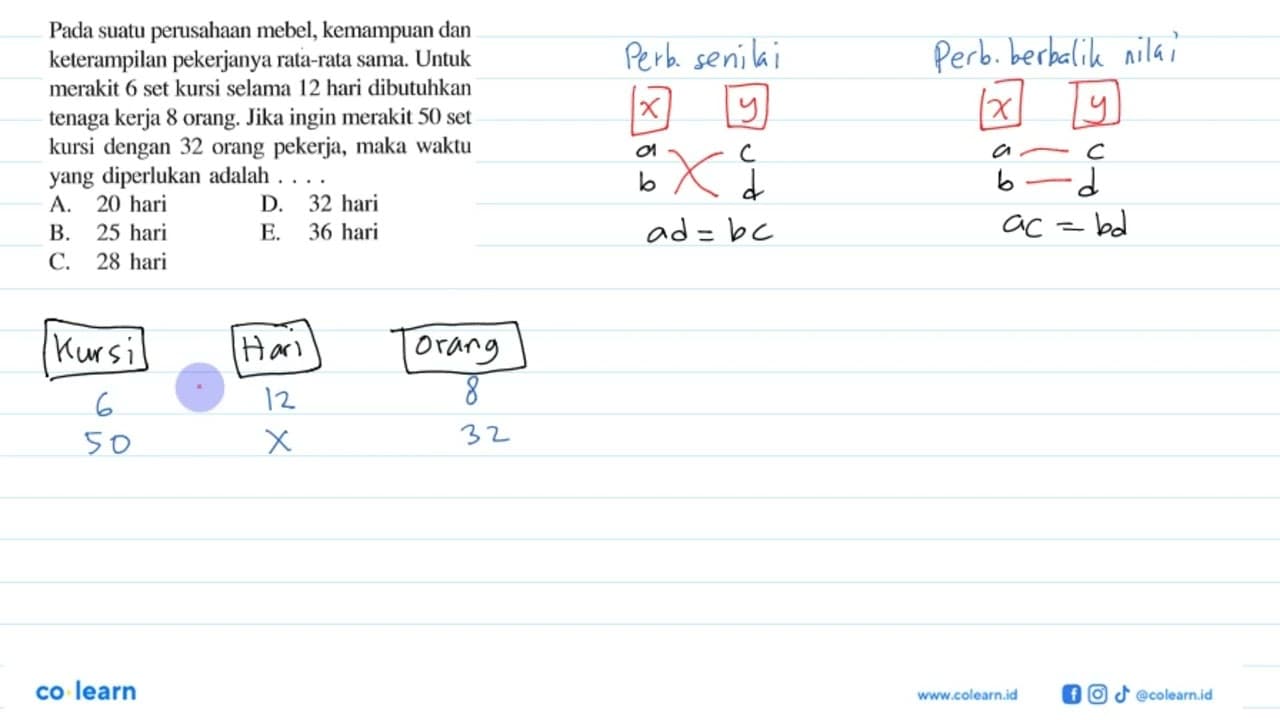 Pada suatu perusahaan mebel, kemampuan dan
keterampilan pekerjanya rata-rata sama. Untuk
merakit 6 set kursi selama 12 hari dibutuhkan
tenaga kerja 8 orang. Jika ingin merakit 50 set
kursi dengan 32 orang pekerja, maka waktu
yang diperlukan adalah . . . .
A. 20 hari D. 32 hari
B. 25 hari E. 36 hari
C. 28 hari
Perb. senilai
x y
a c
b d
ad = bc
Perb. berbalik nilai
x y
a c
b d
ac = bd
Kursi Hari Orang
6 12 8
50 x 32
co learn
www.colearn.id
@colearn.id